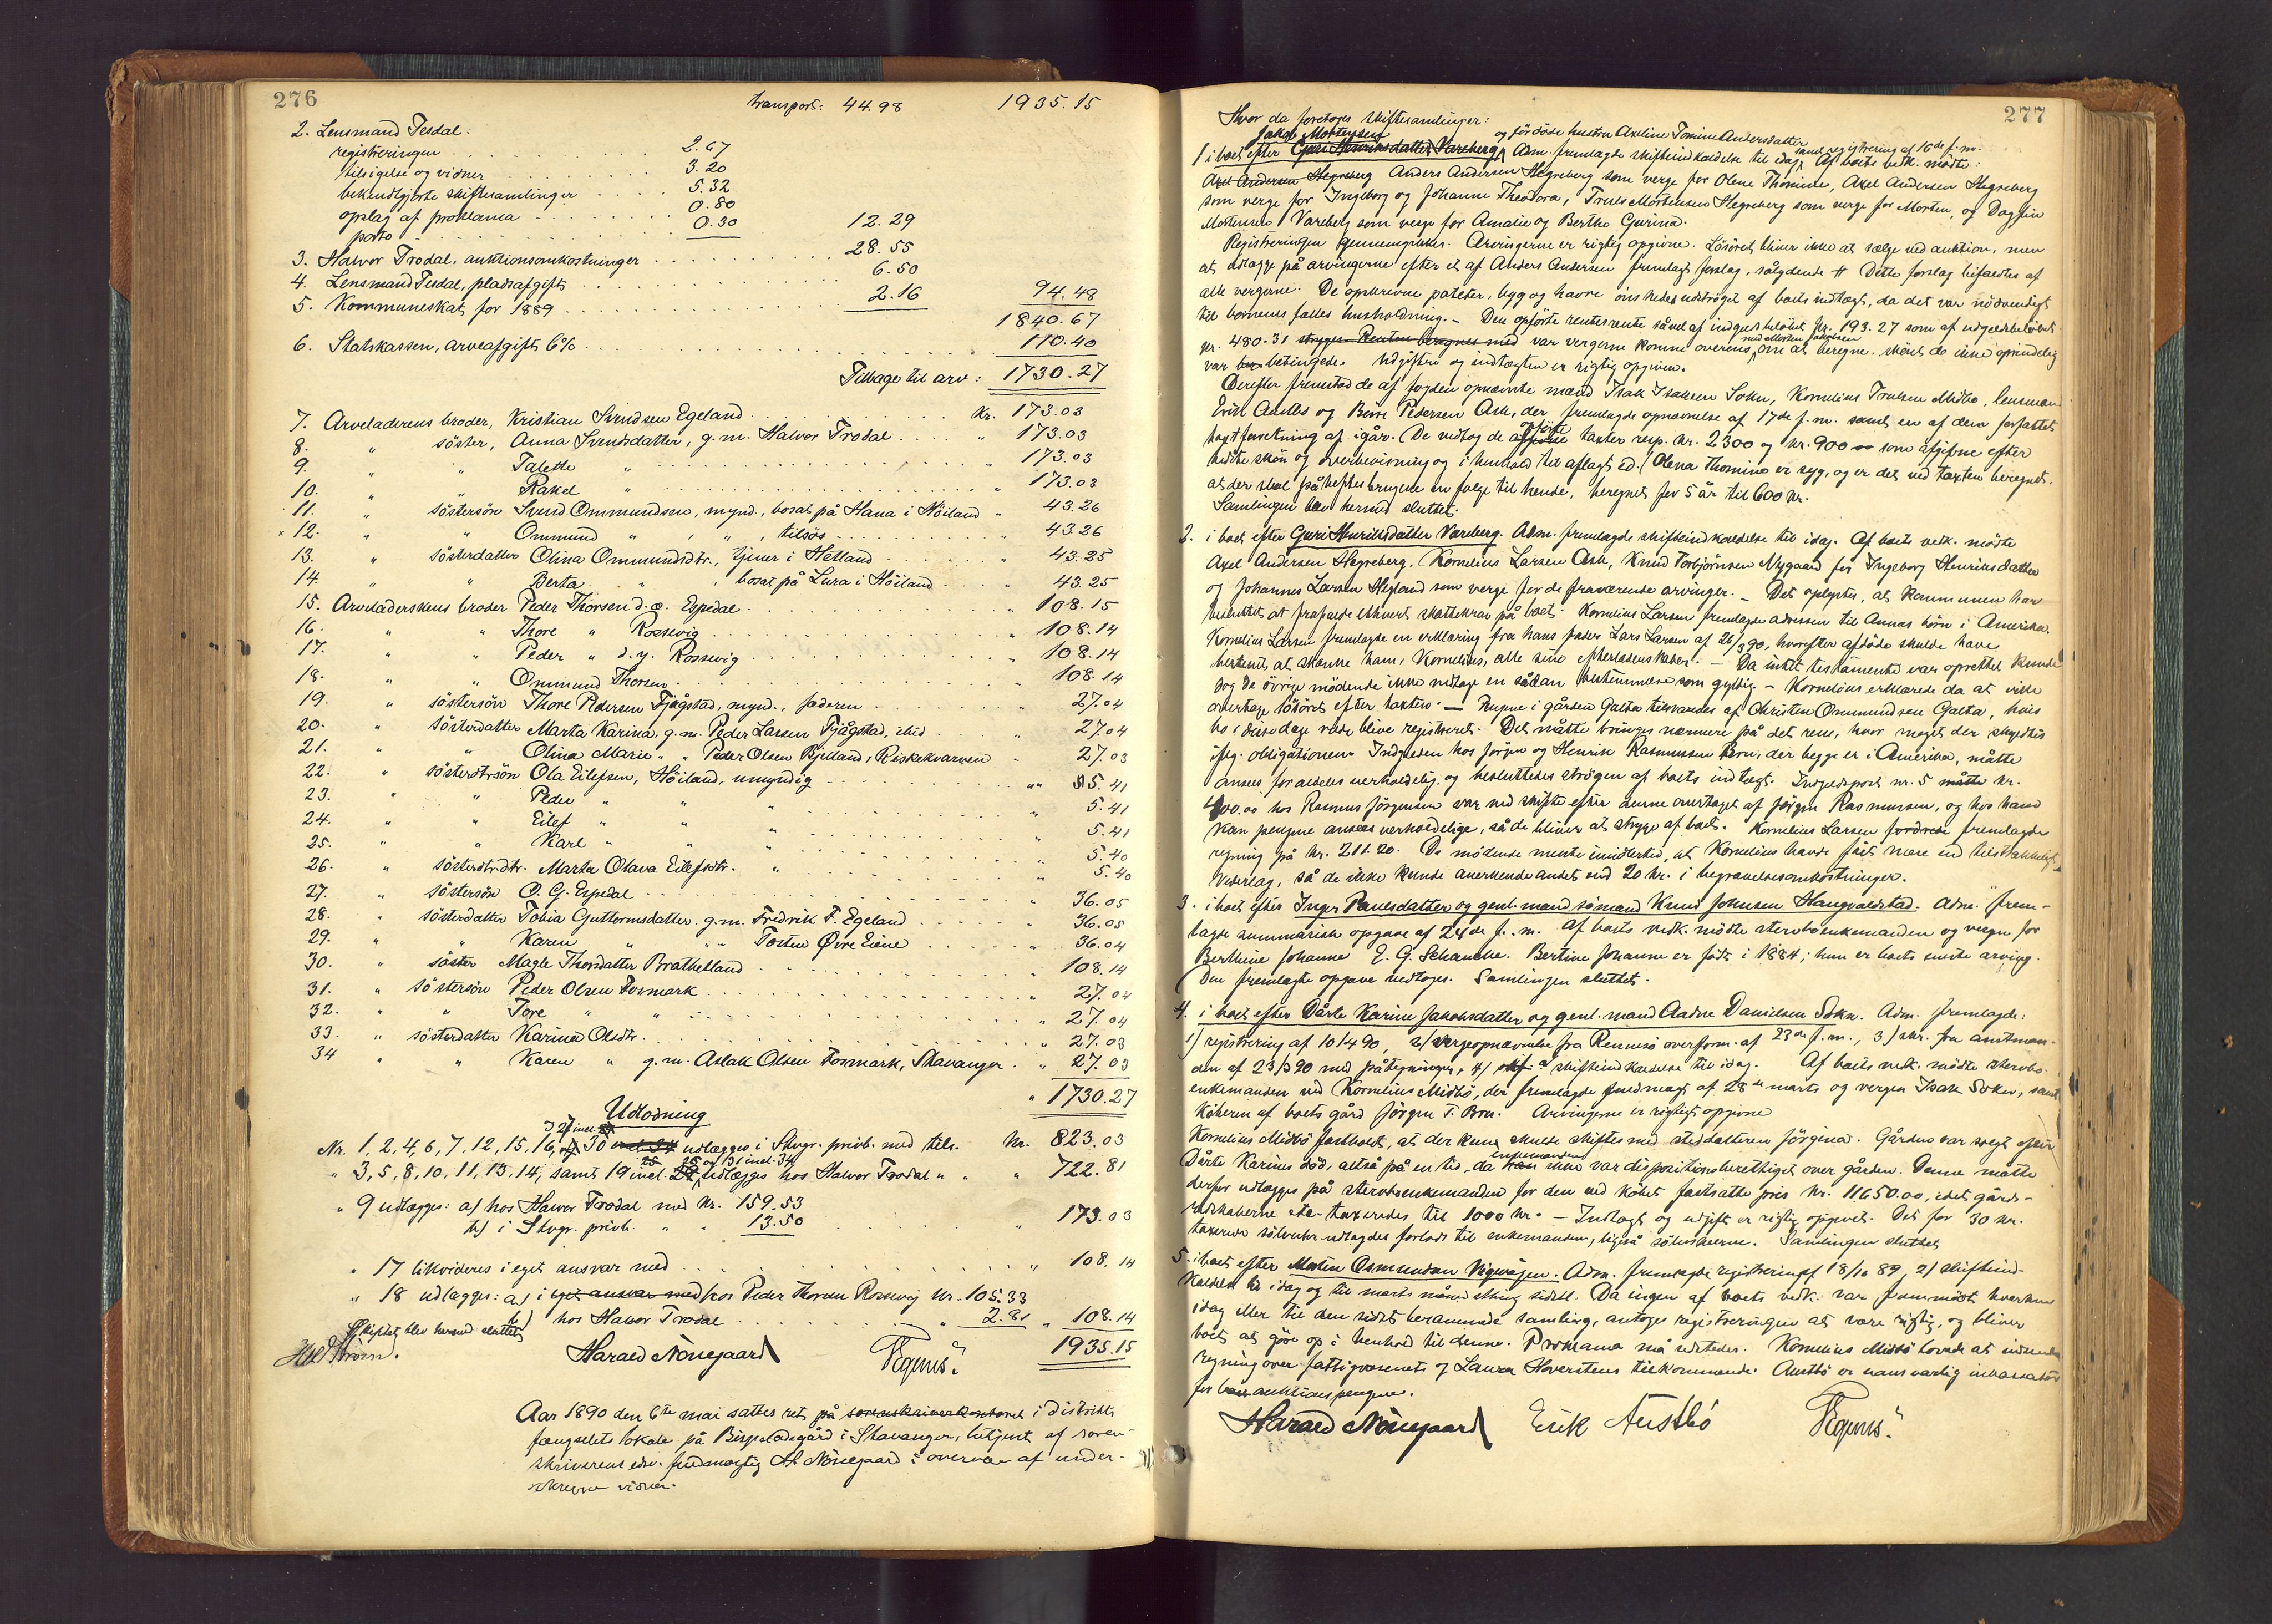 276
transport: 44.98 1935.15
2. Lensmand Tesdal:
registreringen 2.67
tilsigelse og vidner 3.20
bekjendtgjorte skiftesamlinger 5.32
opslag af proklama 0.80
porto 0.30 12.29
3. Halvor Trodal, auktionsomkostninger 28.55
4. Lensmand Tesdal, pladsafgift 6.50
5. Kommuneskat for 1889 2.16 94.48
1840.67
6. Statskassen, arveafgift 6% 110.40
Tilbage til arv: 1730.27
7. Arveladerens broder, Kristian Svendsen Egeland Kr. 173.03
8. " söster, Anna Svendsdatter, g.m. Halvor Trodal " 173.03
9. " " Talette " " 173.03
10. " " Rakel " " 173.03
11. " söstersön Svend Ommundsen, mynd., bosat på Hana i Höiland " 43.26
× 12. " " Ommund " , " , tilsös " 43.26
13. " sösterdatter Olina Ommundsdtr., tjener i Hetland " 43.25
14. " " Berta " , bosat på Lura i Höiland " 43.25
15. Arveladerskens broder Peder Thorsen d.æ. Espedal " 108.15
16. " " Thore " Rossevig " 108.14
17. " " Peder " d.y. Rossevig " 108.14
18. " " Ommund Thorsen " 108.14
19. " söstersön Thore Pedersen Fjågstad, mynd., faderen " 27.04
20. " sösterdatter Marta Karina, g.m. Peder Larsen Fjågstad, ibid " 27.04
21. " " Olina Marie " " Peder Olsen Bjeland, Riskekvarven " 27.03
22. " sösterdtrsön Ola Eilefsen, Höiland, umyndig " 5.41
23. " " Peder " " " " 5.41
24. " " Eilef " " " " 5.41
25. " " Karl " " " " 5.40
26. " sösterdtrdtr. Marta Olava Eilefsdtr. " " 5.40
27. " söstersön O. G. Espedal " 36.05
28. " sösterdatter Tobia Guttormsdatter, g.m. Fredrik F. Egeland " 36.05
29. " " Karen " " - Tosten Øvre Eiene " 36.04
30. " söster Magle Thorsdatter Brathetland " 108.14
31. " söstersön Peder Olsen Fosmark " 27.04
32. " " Tore " " " 27.04
33. " sösterdatter Karina Olsdtr. " 27.03
34 " " Karen " g.m. Aslak Olsen Fosmark, Stavanger " 27.03
" 1730.27
Udlodning
Nr. 1, 2, 4, 6, 7, 12, 15, 16, 30 udlægges i Stvgr. privb. med tils. Kr. 823.03
" 3, 5, 8, 10, 11, 13, 14, samt 19 incl. 25 og 31 incl. 34 udlægges hos Halvor Trodal " " 722.81
" 9 udlægges: a) hos Halvor Trodal med Kr. 159.53
b) i Stvgr. privb. " " 13.50 " 173.03
" 17 likvideres i eget ansvar med " 108.14
" 18 udlægges: a) i eget ansvar med hos Peder Thorsen Rossevig Kr. 105.33
b) hos Halvor Trodal " 2.81 " 108.14
Skiftet blev hermed sluttet 1935.15
Harald Nörregaard
Aar 1890 den 6te mai sattes ret på sorenskriverkontoret i distrikts
fængselets lokale på Bispeladegård i Stavanger, betjent af soren-
skriverens edsv. fuldmægtig H. Nörregaard i overvær af under-
skrevne vidner.
277
Hvor da foretoges skiftesamlinger:
Jakob Mortensen og fördöde hustru Axeline Tomine Andersdatter
1 i boet efter Guri Henriksdatter Vareberg, Adm. fremlagde skifteindkaldelse til idag, samt registrering af 16de f.m. Af boets vedk. mödte:
Axel Andersen Hegreberg Anders Andersen Hegreberg som verge for Olene Thomine, Axel Andersen Hegreberg
som verge for Ingeborg og Johanne Theodora, Truls Mortensen Hegreberg som verge for Morten, og Dagfin
Mortensen Vareberg som verge for Amalie og Berthe Gurina.
Registreringen gjennemgikkes. Arvingerne er rigtig opgivne. Lösöret bliver ikke at sælge ved auktion, men
at udlægge på arvingerne efter et af Anders Andersen fremlagt forslag, sålydende # Dette forslag bifaldtes af
alle vergerne. De opskrevne poteter, byg og havre önskedes udströget af boets indtægt, da det var nödvendigt
til börnenes fælles husholdning. – Den opförte rentesrente såvel af indgjeldsbelöbet kr. 193.27 som af udgjeldsbelöbet
kr. 480.31 stryges. Renten beregnes med var vergerne komne overens med Morten Jakobsen om at beregne, skönt de ikke oprindelig
var betingede. Udgiften og indtægten er rigtig opgiven.
Derefter fremstod de af fogden opnævnte mænd Isak Isaksen Sokn, Kornelius Trulsen Midbö, lensmand
Erik Austbö og Berre Pedersen Ask, der fremlagde opnævnelse af 17de f.m. samt en af dem forfattet
taxtforretning af igår. De vedtog de opförte taxter resp. kr. 2300 og kr. 900 som afgivne efter
bedste skön og overbevisning og i henhold til aflagt ed. (Olena Thomine er syg, og er det ved taxten beregnet,
at der skal påhefte brugene en følge til hende, beregnet for 5 år til 600 kr.
Samlingen blev hermed sluttet.
2. i boet efter Guri Henriksdatter Vareberg. Adm. fremlagde skifteindkaldelse til idag. Af boets vedk. mödte
Axel Andersen Hegreberg, Kornelius Larsen Ask, Knud Torbjörnsen Nygaard for Ingeborg Henriksdatter
og Johannes Larsen Hegland som verge for de fraværende arvinger. – Det oplystes, at kommunen har
besluttet at frafalde ethvert skattekrav på boet. Kornelius Larsen fremlagde adressen til Annas börn i Amerika.
Kornelius Larsen fremlagde en erklæring fra hans fader Lars Larsen af 26/3 90, hvorefter afdöde skulde have
bestemt, at skjenke ham, Kornelius, alle sine efterladenskaber. – Da intet testamente var oprettet kunde
dog de övrige mödende ikke vedtage en sådan bestemmelse som gyldig. – Kornelius erklærede da at ville
overtage lösöret efter taxten. – Pengene i gården Galta tilsvaredes af Christen Ommundsen Galta, hvis
bo i disse dage vilde blive registreret. Det måtte bringes nærmere på det rene, hvor meget der skyldtes
iflg. obligationen. Indgjelden hos Jörgen og Henrik Rasmussen Bern, der begge er i Amerika, måtte
ansees for aldeles uerholdelig og besluttedes strögen af boets indtægt. Indgjeldspost nr. 5 måtte kr.
400.00 hos Rasmus Jörgensen var ved skifte efter denne overtaget af Jörgen Rasmussen, og hos ham
kan pengene ansees uerholdelige, så de bliver at stryge af boet. Kornelius Larsen fordrede fremlagde
regning på kr. 211.20. De mödende mente imidlertid, at Kornelius havde fået mere end tilstrækkeligt
vederlag, så de ikke kunde anerkende andet end 20 kr. i begravelsesomkostninger.
3. i boet efter Inger Paulsdatter og genl. mand sömand Knud Johnsen Haugvaldstad. Adm. frem-
lagde summarisk opgave af 24de f.m. Af boets vedk. mödte sterboenkemanden og vergen for
Berthine Johanne E. G. Schanche. Bertine Johanne er födt i 1884; hun er boets eneste arving.
Den fremlagte opgave vedtoges. Samlingen sluttet.
4. i boet efter Dårte Karine Jakobsdatter og genl. mand Aadne Danielsen Sokn. Adm. fremlagde:
1) registrering af 10/4 90, 2) vergeopnævnelse fra Rennesö overform. af 23de f.m., 3) skr. fra amtman-
den af 23/3 90 med påtegninger, 4) skifteindkaldelse til idag. Af boets vedk. mödte sterbo-
enkemanden ved Kornelius Midbö, der fremlagde fuldmagt af 28de marts og vergen Isak Sokn, samt
köberen af boets gård Jörgen T. Bru. Arvingerne er rigtigt opgivne
Kornelius Midbö fastholdt, at der kun skulde skiftes med steddatteren Jörgina. Gården var solgt efter
Dårte Karines död, altså på en tid, da enkemanden ikke var dispositionsberettiget over gården. Denne måtte
derfor udlægges på sterboenkemanden for den ved köbet fastsatte pris kr. 11650.00, idet gårds-
redskaberne etc. taxeredes til 1000 kr. – Indtægt og udgift er rigtig opgivet. Det for 30 kr.
taxerede sölvuhr udlagdes forlods til enkemanden, ligeså sölvskeerne. Samlingen sluttet
5. i boet efter Morten Osmundsen Vigevågen. Adm. fremlagde registrering af 18/10 89, 2) skifteind-
kaldelse til idag og til marts måned thing sidstl. Da ingen af boets vedk. var fremmödt hverken
idag eller til den sidst berammede samling, antoges registreringen at være rigtig, og bliver
boet at gjöre op i henhold til denne. Proklama må udstedes. Kornelius Midbö lovede at indsende
regning over fattigvæsenets og Laura Haverstens tilkommende. Austbö er uansvarlig inkassator
for auktionspengene.
Harald Nörregaard Erik Austbö